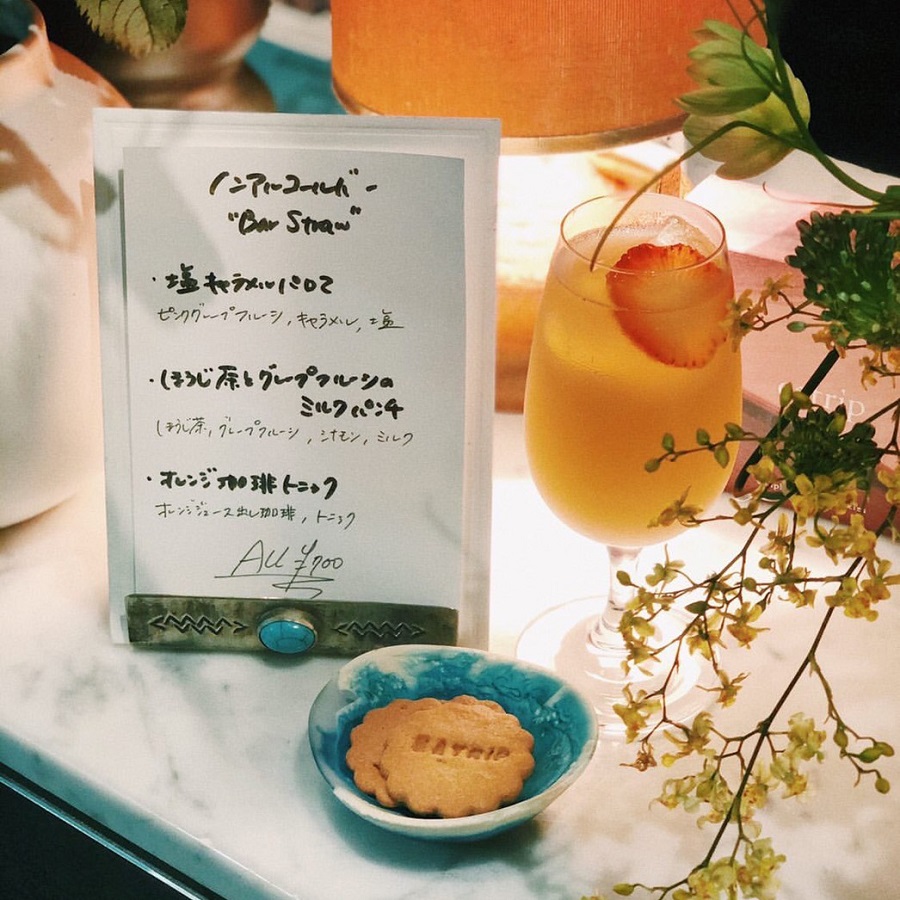 ノンアルコールバー
"Bar Straw"
・塩キャラメルパロマ
ピンクグレープフルーツ, キャラメル, 塩
・ほうじ茶とグレープフルーツの
ミルクパンチ
ほうじ茶, グレープフルーツ, シナモン, ミルク
・オレンジ珈琲トニック
オレンジジュース出し珈琲, トニック
All ¥700
EATRIP
trip